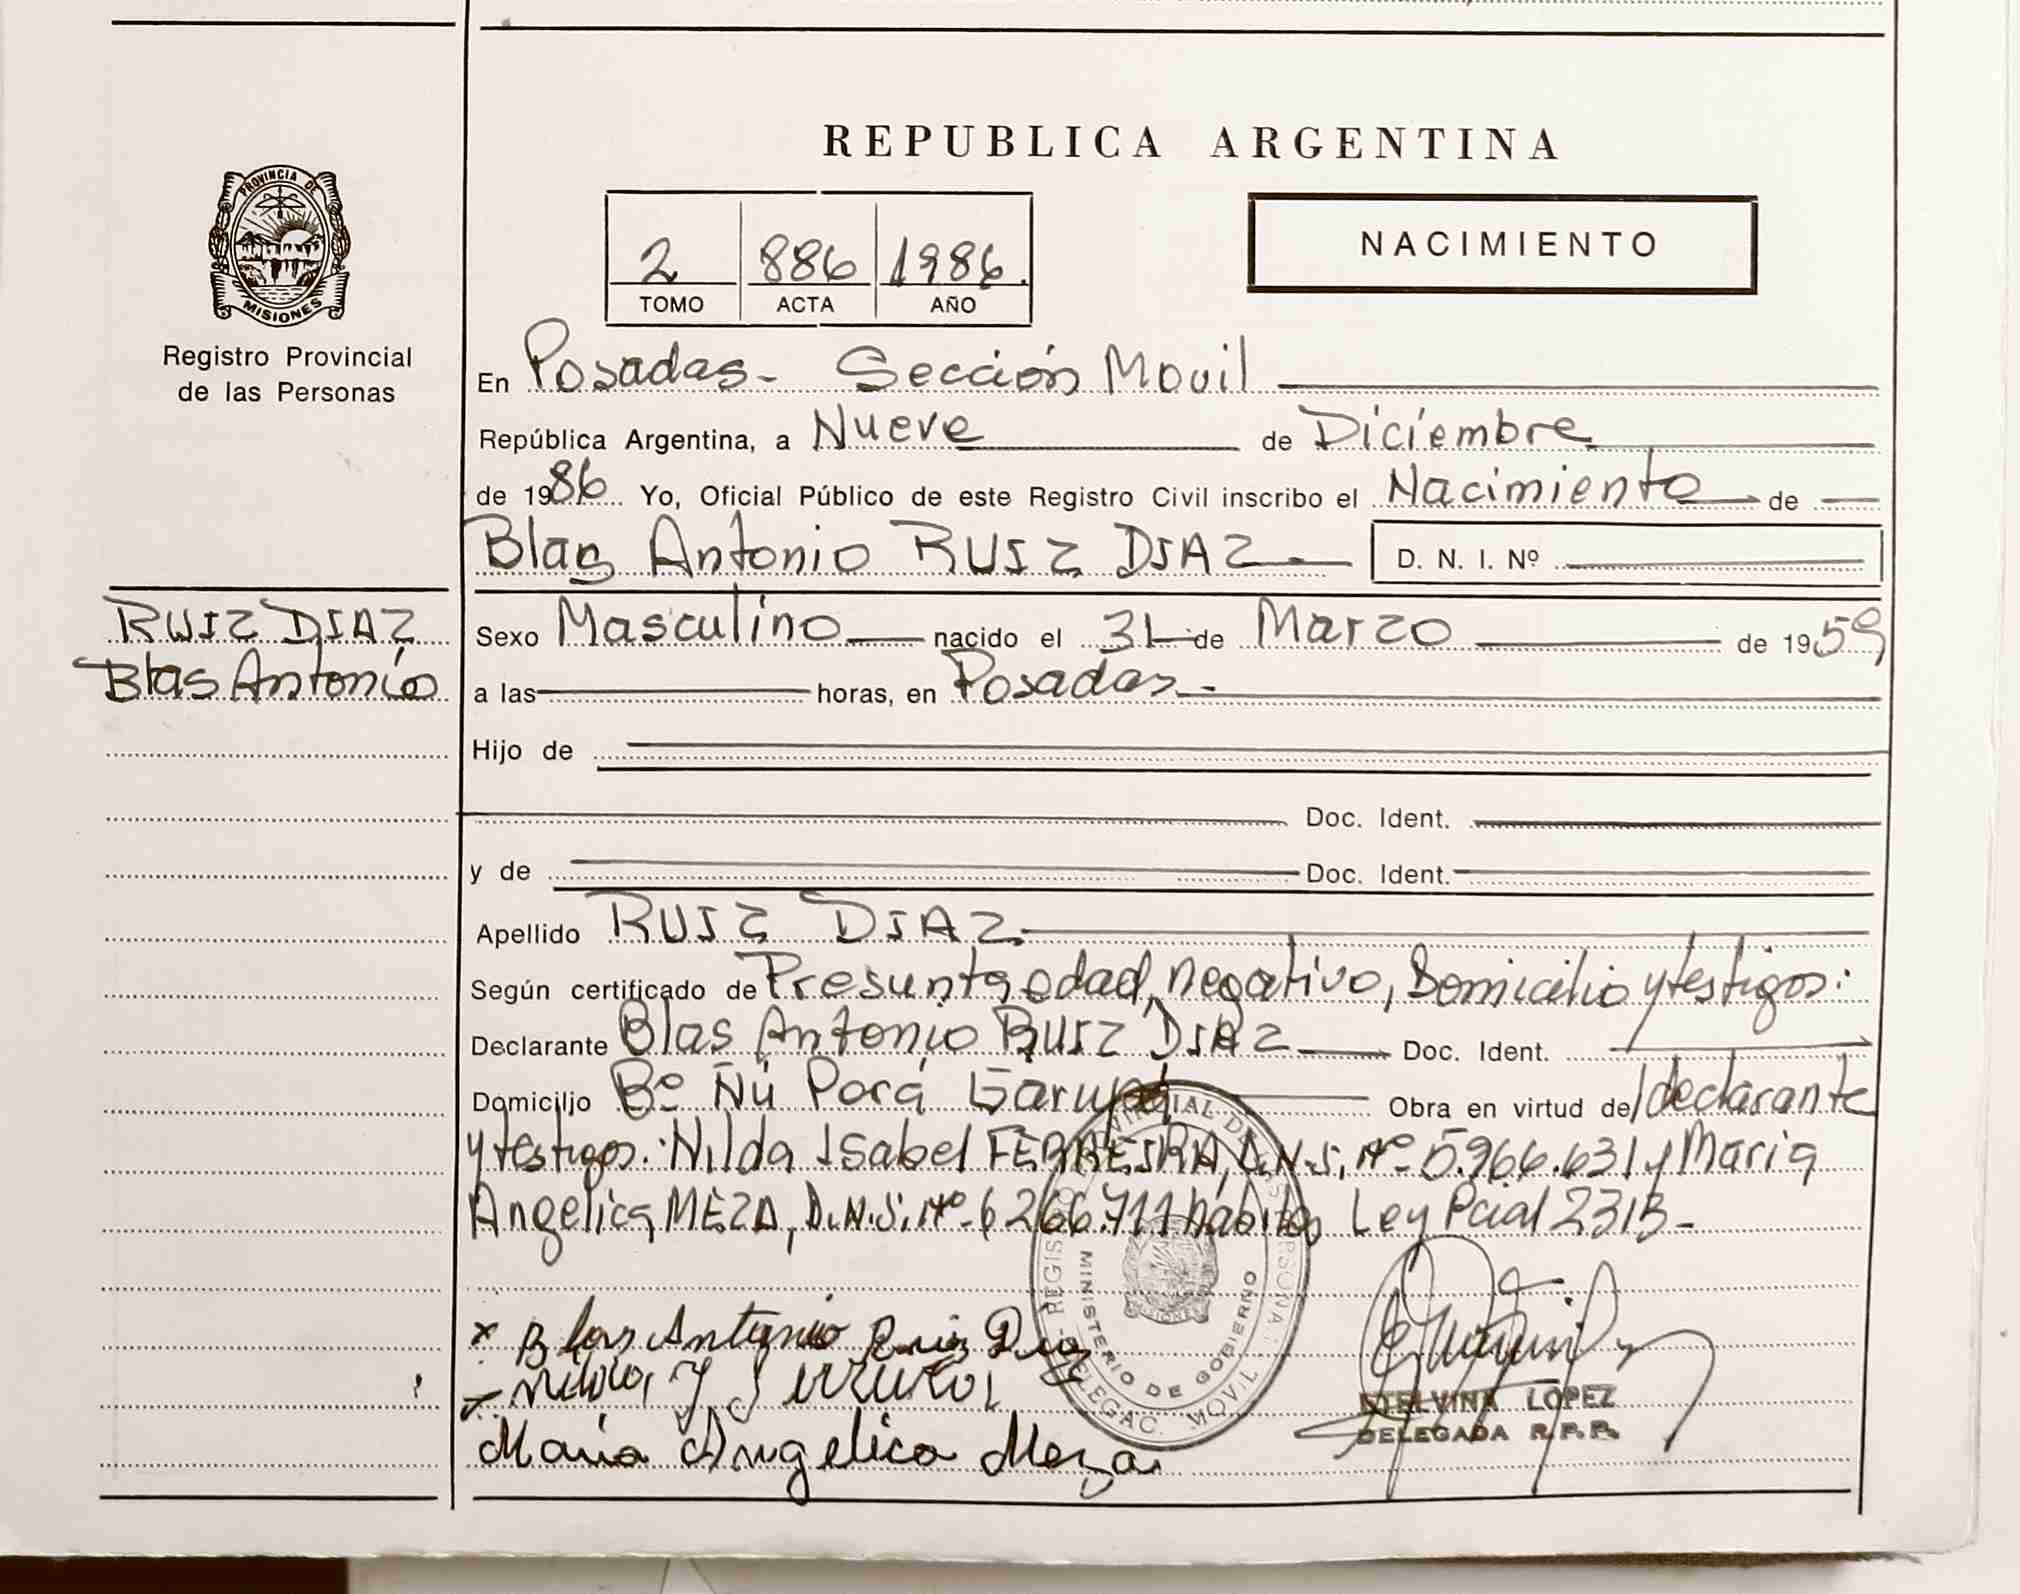 REPUBLICA ARGENTINA
PROVINCIA DE
MISIONES
Registro Provincial
de las Personas
2 886 1986.
TOMO ACTA AÑO
NACIMIENTO
En Posadas- Sección Movil
República Argentina, a Nueve de Diciembre
de 1986 Yo, Oficial Público de este Registro Civil inscribo el Nacimiento de
Blas Antonio RUIZ DIAZ D. N. I. Nº
RUIZ DIAZ
Blas Antonio
Sexo Masculino nacido el 31 de Marzo de 1959
a las horas, en Posadas-
Hijo de
Doc. Ident.
y de Doc. Ident.
Apellido RUIZ DIAZ
Según certificado de Presunta edad, negativo, Domicilio y testigos:
Declarante Blas Antonio RUIZ DIAZ Doc. Ident.
Domicilio Bº Ñú Porá Garupá Obra en virtud de/declarante
y testigos: Nilda Isabel FERREIRA, D.N.I. Nº 5.966.631 y Maria
Angelica MEZA, D.N.I. Nº 6266.711 hábiles Ley Pcial 2313-
x Blas Antonio Ruiz Diaz
Maria Angelica Meza
REGISTRO PROVINCIAL DE LAS PERSONAS
MINISTERIO DE GOBIERNO
DELEGAC. MOVIL
ETELVINA LOPEZ
DELEGADA R.P.P.